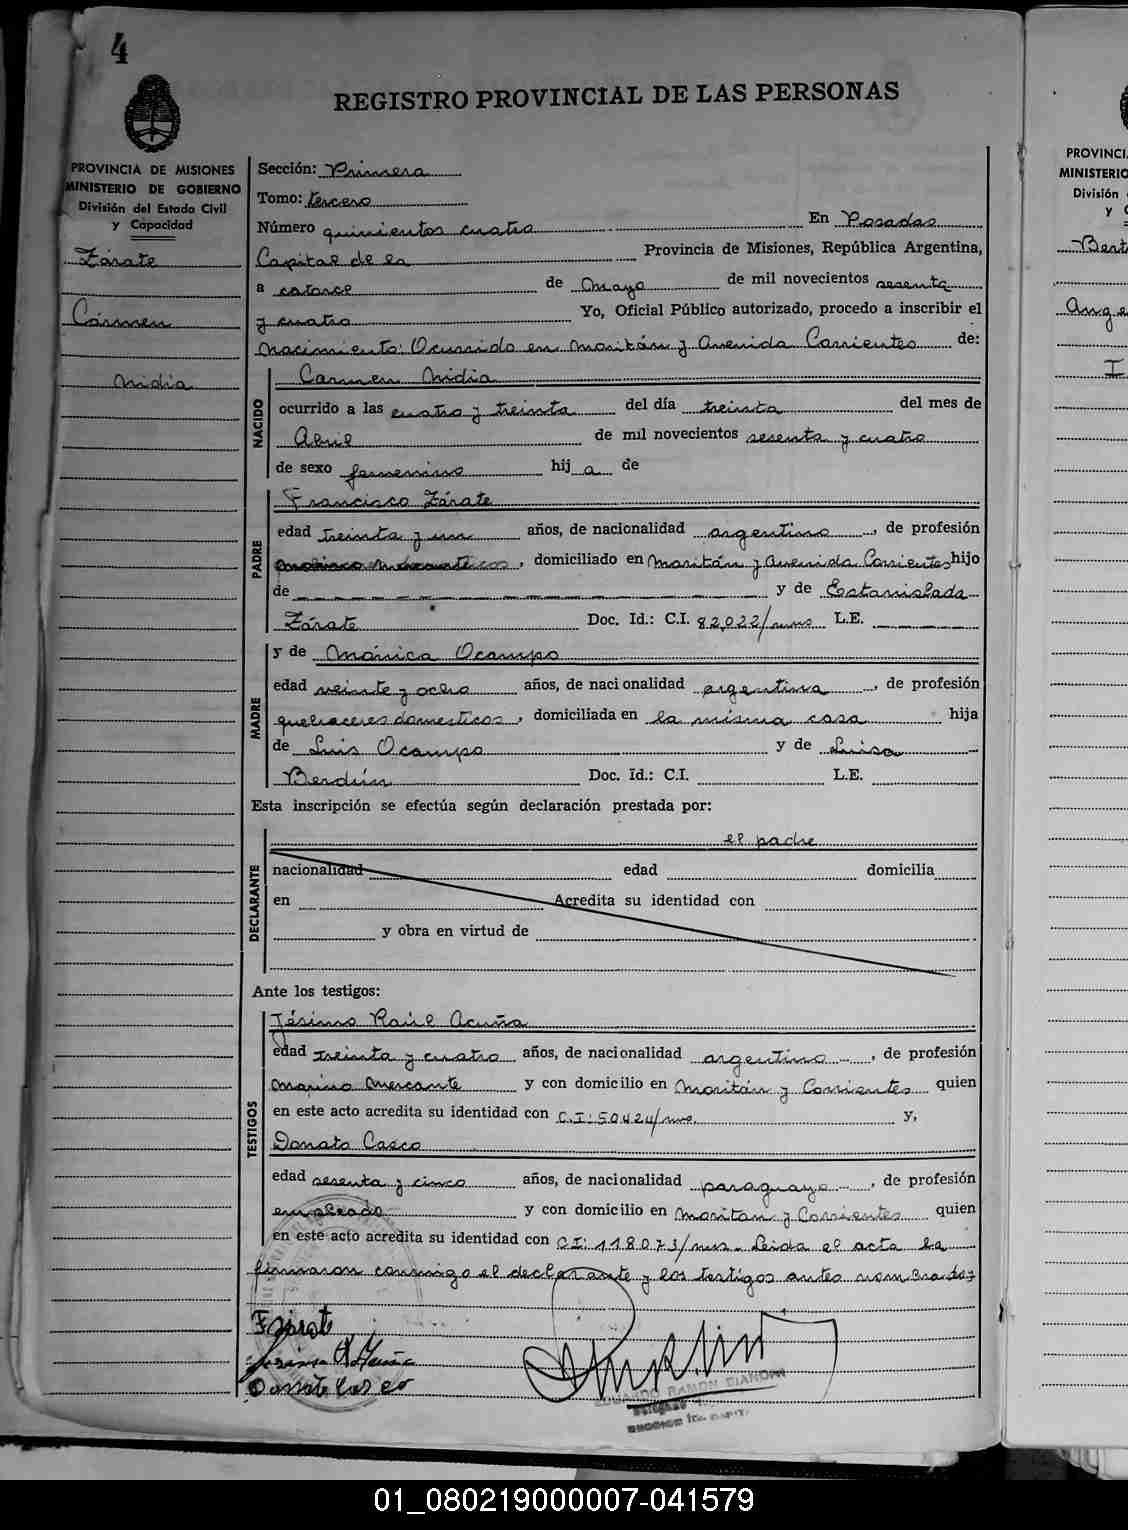 4
REGISTRO PROVINCIAL DE LAS PERSONAS
PROVINCIA DE MISIONES
MINISTERIO DE GOBIERNO
División del Estado Civil
y Capacidad
Zárate
Cármen
Nidia
Sección: Primera
Tomo: tercero
Número quinientos cuatro En Posadas
Capital de la Provincia de Misiones, República Argentina,
a catorce de Mayo de mil novecientos sesenta
y cuatro Yo, Oficial Público autorizado, procedo a inscribir el
nacimiento: Ocurrido en Moritán y Avenida Corrientes de:
NACIDO
Carmen Nidia
ocurrido a las cuatro y treinta del día treinta del mes de
Abril de mil novecientos sesenta y cuatro
de sexo femenino hij a de
PADRE
Francisco Zárate
edad treinta y un años, de nacionalidad argentino, de profesión
, domiciliado en Moritán y Avenida Corrientes hijo
de y de Estanislada
Zárate Doc. Id.: C.I. 82,022/mns L.E.
MADRE
y de Mónica Ocampo
edad veinte y ocho años, de nacionalidad argentina, de profesión
quehaceres domesticos, domiciliada en la misma casa hija
de Luis Ocampo y de Luisa
Berdún Doc. Id.: C.I. L.E.
Esta inscripción se efectúa según declaración prestada por:
DECLARANTE
el padre
nacionalidad edad domicilia
en Acredita su identidad con
y obra en virtud de
Ante los testigos:
TESTIGOS
Jésimo Raúl Acuña
edad treinta y cuatro años, de nacionalidad argentino, de profesión
Marino Mercante y con domicilio en Moritán y Corrientes quien
en este acto acredita su identidad con C.I: 50424/mns. y,
Donato Casco
edad sesenta y cinco años, de nacionalidad paraguayo, de profesión
empleado y con domicilio en Moritan y Corrientes quien
en este acto acredita su identidad con CI: 118073/mns. Leida el acta la
firmaron conmigo el declarante y los testigos antes nombrados
F Zárate
Donato Casco
EDUARDO RAMON
PROVINCI
MINISTERIO
División
y C
Bert
Ange
I
01_080219000007-041579